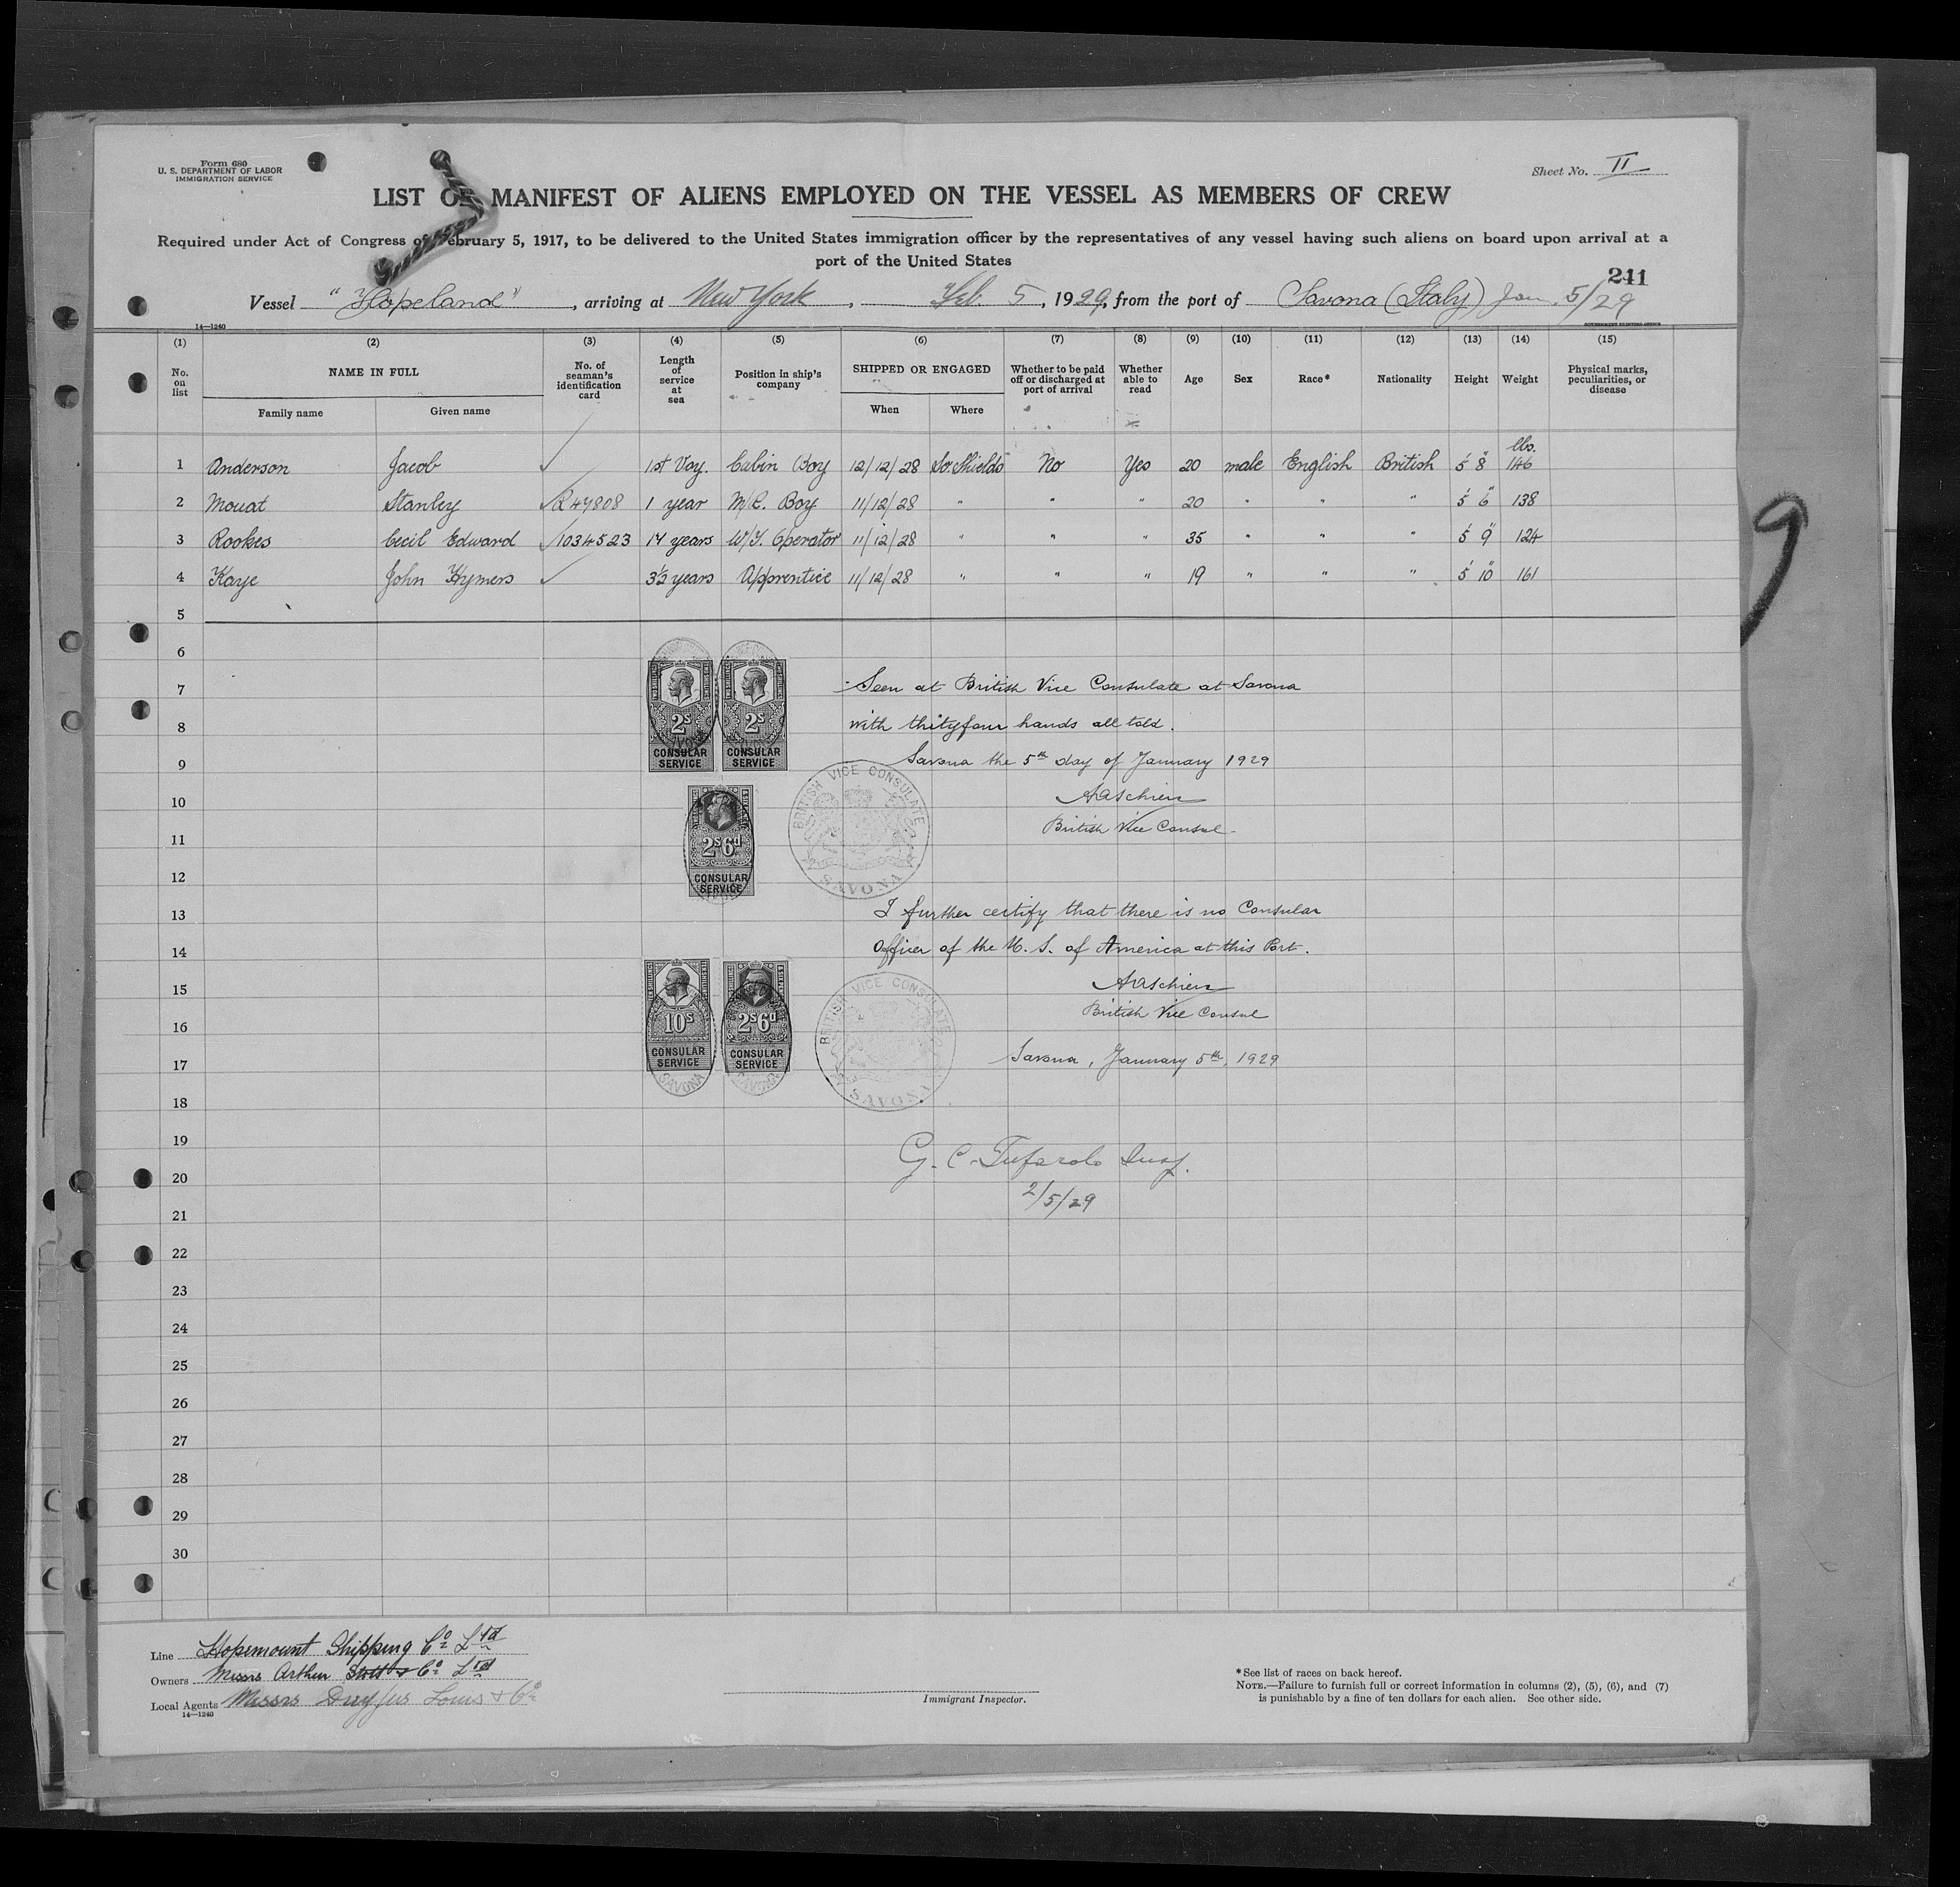 Form 680
U. S. DEPARTMENT OF LABOR
IMMIGRATION SERVICE
Sheet No. II
LIST OR MANIFEST OF ALIENS EMPLOYED ON THE VESSEL AS MEMBERS OF CREW
Required under Act of Congress of February 5, 1917, to be delivered to the United States immigration officer by the representatives of any vessel having such aliens on board upon arrival at a
port of the United States
241
Vessel "Hopeland", arriving at New York, Feb 5, 1929, from the port of Savona (Italy) Jan. 5/29
14—1240
GOVERNMENT PRINTING OFFICE
(1) (2) (3) (4) (5) (6) (7) (8) (9) (10) (11) (12) (13) (14) (15)
No. on list NAME IN FULL No. of seaman's identification card Length of service at sea Position in ship's company SHIPPED OR ENGAGED Whether to be paid off or discharged at port of arrival Whether able to read Age Sex Race* Nationality Height Weight Physical marks, peculiarities, or disease
Family name Given name When Where
lbs.
1 Anderson Jacob ✓ 1st Voy. Cabin Boy 12/12/28 So. Shields No Yes 20 male English British 5' 8" 146
2 Mouat Stanley ✓ R47808 1 year M/R. Boy 11/12/28 " " " 20 " " " 5' 6" 138
3 Rookes Cecil Edward ✓ 1034523 14 years W/T. Operator 11/12/28 " " " 35 " " " 5' 9" 124
4 Kaye John Hymers ✓ 3½ years Apprentice 11/12/28 " " " 19 " " " 5' 10" 161
5
6
7 Seen at British Vice Consulate at Savona
8 with thityfour hands all told.
9 Savona the 5th day of January 1929
10
11 British Vice Consul
12
13 I further certify that there is no Consular
14 Officer of the U. S. of America at this Port.
15
16 British Vice Consul
17 Savona, January 5th, 1929
18
19
G. C. Tufarolo Insp.
20
2/5/29
21
22
23
24
25
26
27
28
29
30
2s CONSULAR SERVICE
2s CONSULAR SERVICE
2s6d CONSULAR SERVICE
BRITISH VICE CONSULATE SAVONA
10s CONSULAR SERVICE SAVONA
2s6d CONSULAR SERVICE SAVONA
BRITISH VICE CONSULATE SAVONA
Line Hopemount Shipping Co Ltd
Owners Messrs Arthur Stott & Co Ltd
Local Agents Messrs Dreyfus Louis & Co
14—1240
Immigrant Inspector.
*See list of races on back hereof.
NOTE.—Failure to furnish full or correct information in columns (2), (5), (6), and (7)
is punishable by a fine of ten dollars for each alien. See other side.